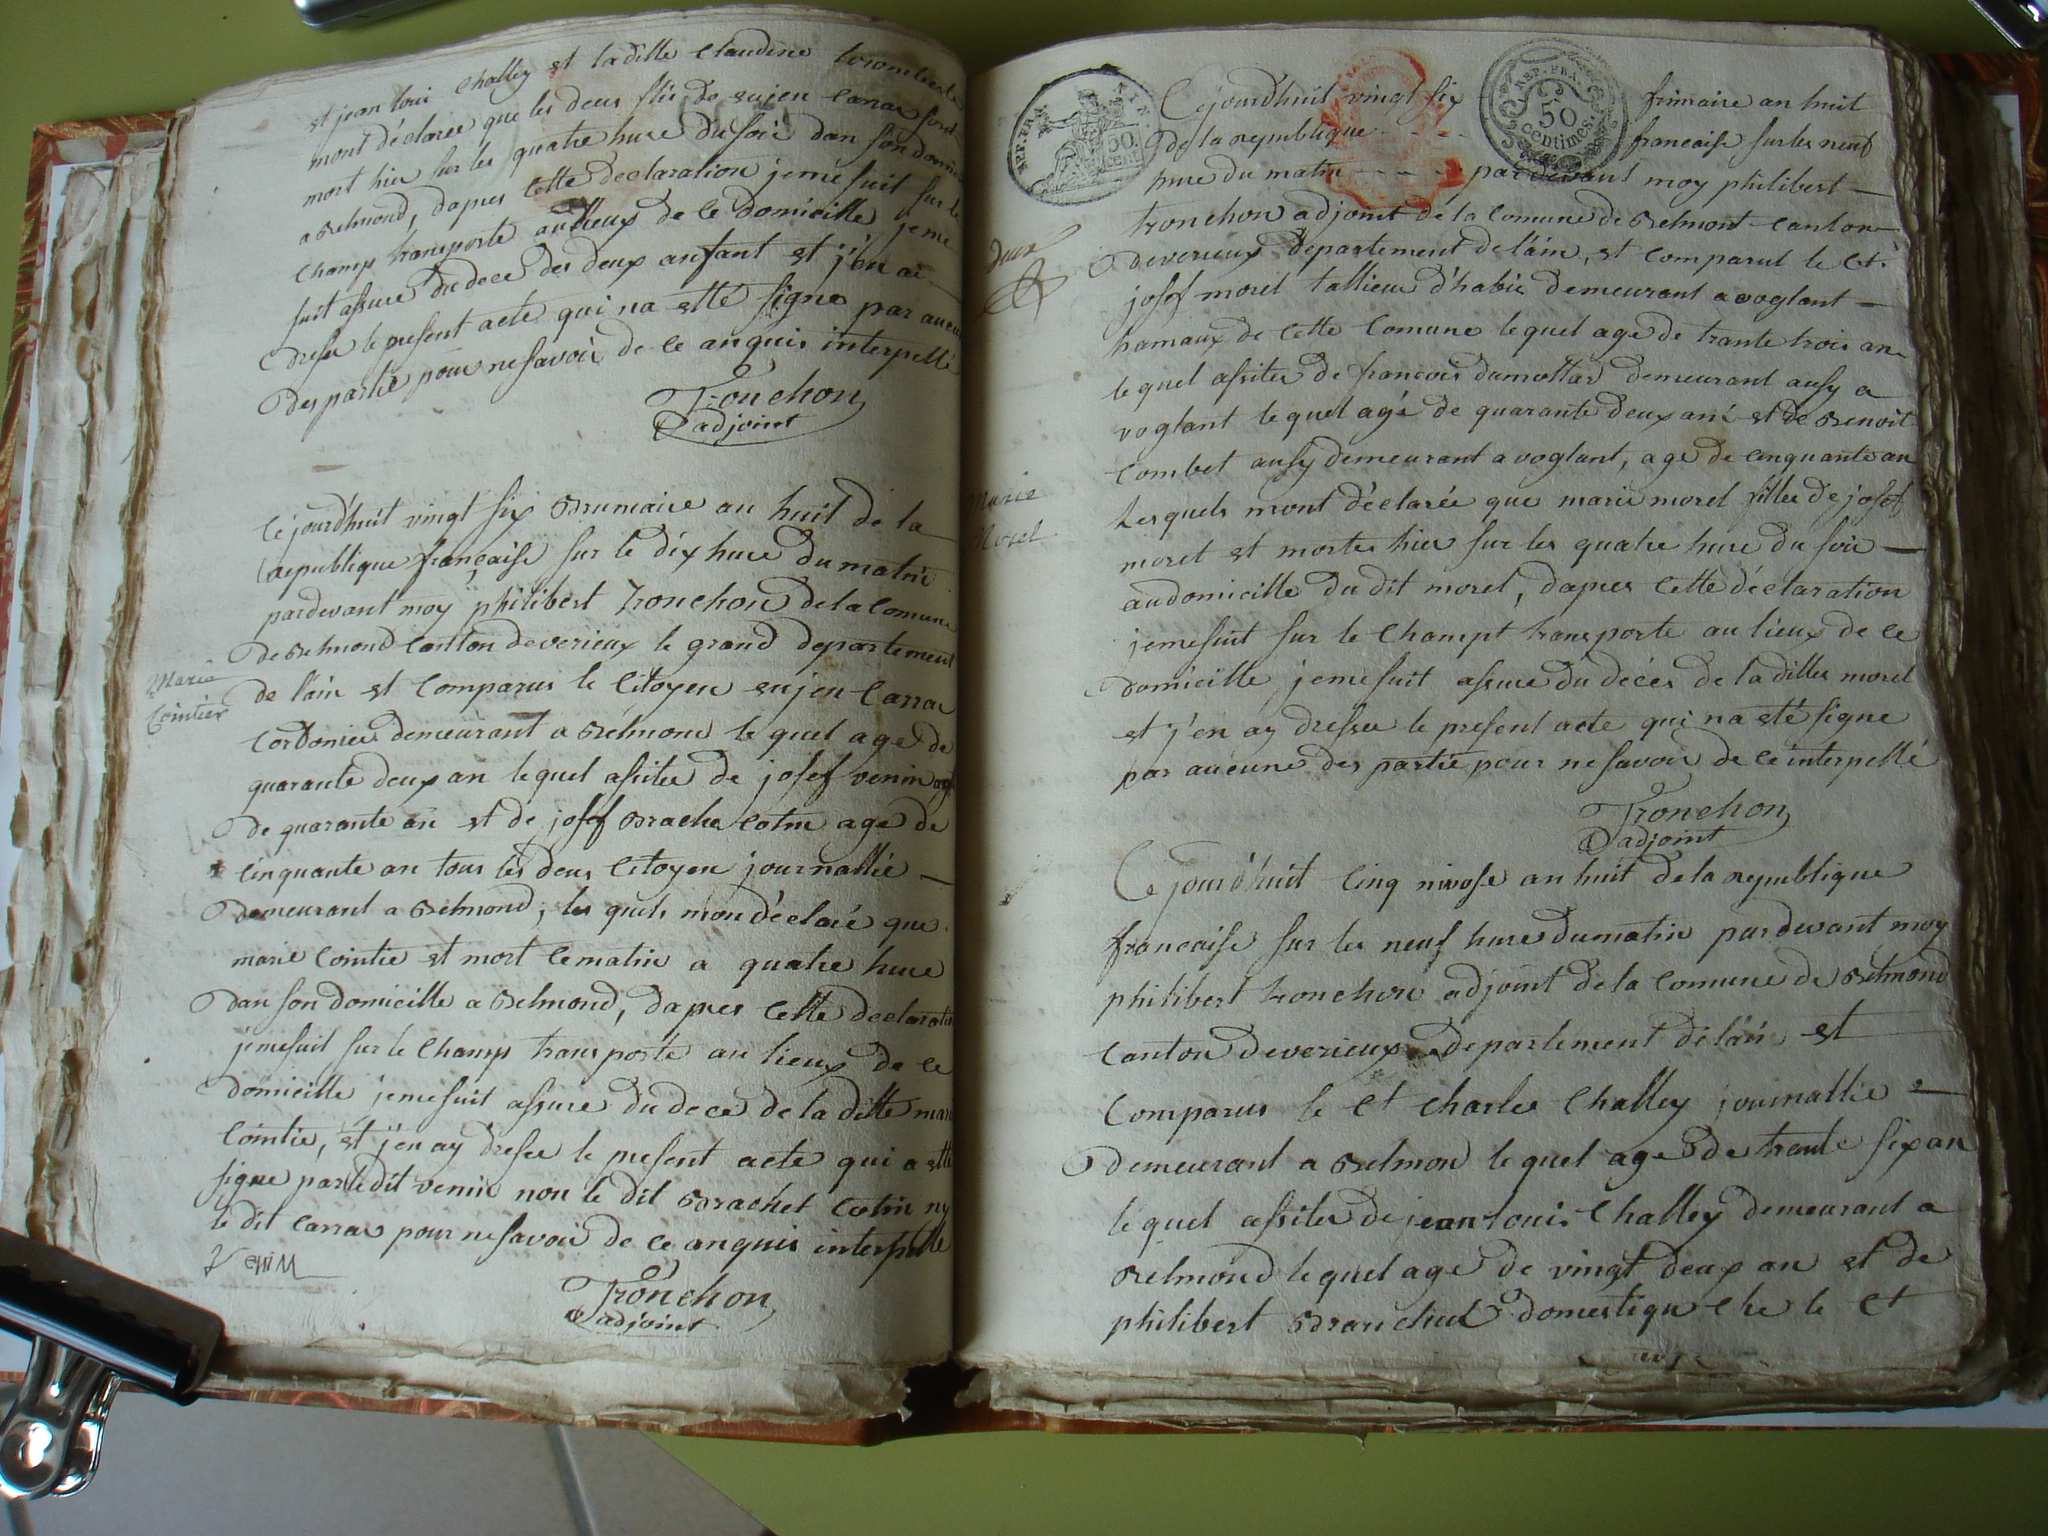 et jean loui Challey et la ditte Claudine
mont déclaree que les deus filie de eujen Carrar sont
mort hier sur les quatre hure du soir dan son domi
a Belmond, dapres Cette declaration jemesuit sur le
Champ transporte au lieux de Ce domicille, jeme
suit assure du dece des deux anfant et j'en ai
dresse le present acte qui na etté signe par aucu
des partie pour ne savoir de Ce anquis interpellé
Tronchon
adjoint
Marie
Cointier
Cejourd'huit vingt six Brumaire an huit de la
republique française sur le dix hure du matin
pardevant moy philibert Tronchon de la Comune
de Belmond Canton de verieux le grand departement
de l'ain et Comparus le Citoyen eujen Carrar
Cordonier demeurant a Belmond le quel age de
quarante deux an lequel assitee de josef venin age
de quarante an et de josef Brachet Cotin age de
Cinquante an tous les deus Citoyen journallié
demeurant a Belmond, les quels mon déclaré que
marie Cointie et mort Cematin a quatre hure
dan son domicille a Belmond, dapres Cette declaration
jemesuit sur le Champ transporte au lieux de Ce
domicille jemesuit assure du dece de la ditte mari
Cointie, et j'en ay dresee le present acte qui a etté
signe par le dit venin non le dit Brachet Cotin ny
le dit Carrar pour ne savoir de Ce anquis interpelle
Venin
Tronchon
adjoint
REP. FRA.
50
CENT.
AIN
REP. FRA.
50
centimes.
Cejourdhuit vingt six frimaire an huit
de la republique francaise sur les neuf
hure du matin pardevant moy philibert
tronchon adjoint de la Comune de Belmont Canton
deverieux departement de lain, et Comparut le Ct.
josef morel tallieur d'habis demeurant a voglant
hamaux de Cette Comune lequel age de trante trois an
lequel assitee de francois dumollar demeurant ausy a
voglant lequel agé de quarante deux an et de Benoit
Combet ausy demeurant a voglant, age de Cinquante an
Marie
Morel
Lesquels mont déclarée que marie morel fillee de josef
morel et mortee hier sur les quatre hure du soir
audomicille du dit morel, dapres Cette déclaration
jemesuit sur le Champt transporte au lieux de Ce
domicille jemesuit assure du décés de la ditte morel
et j'en ay dressee le present acte qui na eté signe
par aucune des partie pour ne savoir de Ce interpellé
Tronchon
adjoint
Cejourd'huit Cinq nivose an huit de la republique
francaise sur les neuf hure du matin pardevant moy
philibert tronchon adjoint de la Comune de Belmond
Canton deverieux departement de l'ain et
Comparus le Ct Charle Challey journallie
demeurant a Belmon lequel age de trante six an
lequel assitee de jean loui Challey demeurant a
Belmond lequel age de vingt deux an et de
philibert domestique Che le Ct